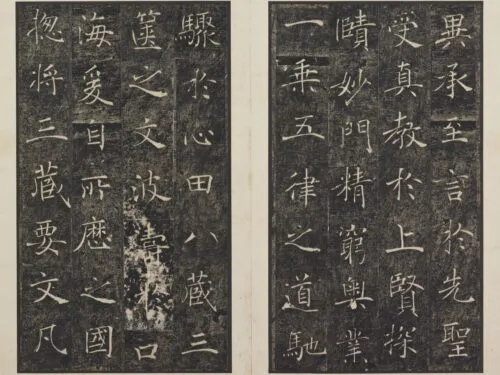 異承至言於先聖
受真教於上賢探
賾妙門精窮奧業
一乘五律之道馳
驟於心田八藏三
篋之文波濤於口
海爰自所歷之國
揔將三藏要文凡